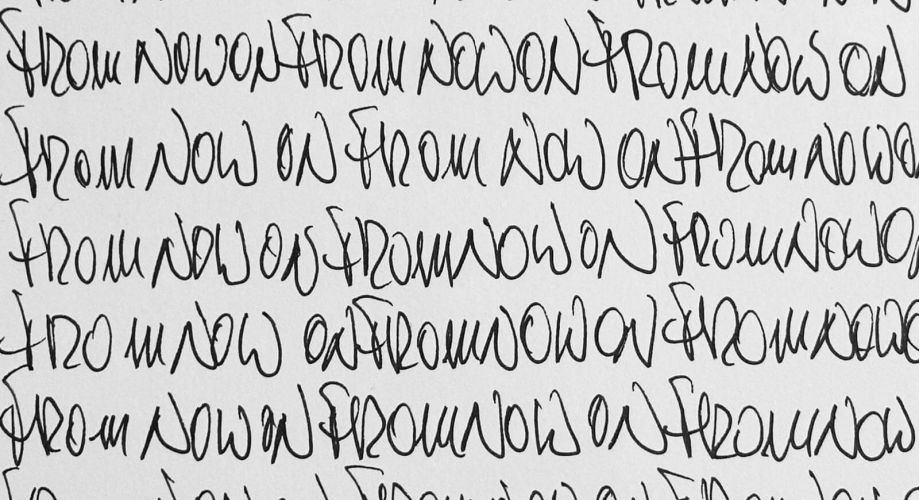 FROM NOW ON FROM NOW ON FROM NOW ON
FROM NOW ON FROM NOW ON FROM NOW O
FROM NOW ON FROM NOW ON FROM NOW O
FROM NOW ON FROM NOW ON FROM NOW O
FROM NOW ON FROM NOW ON FROM NOW